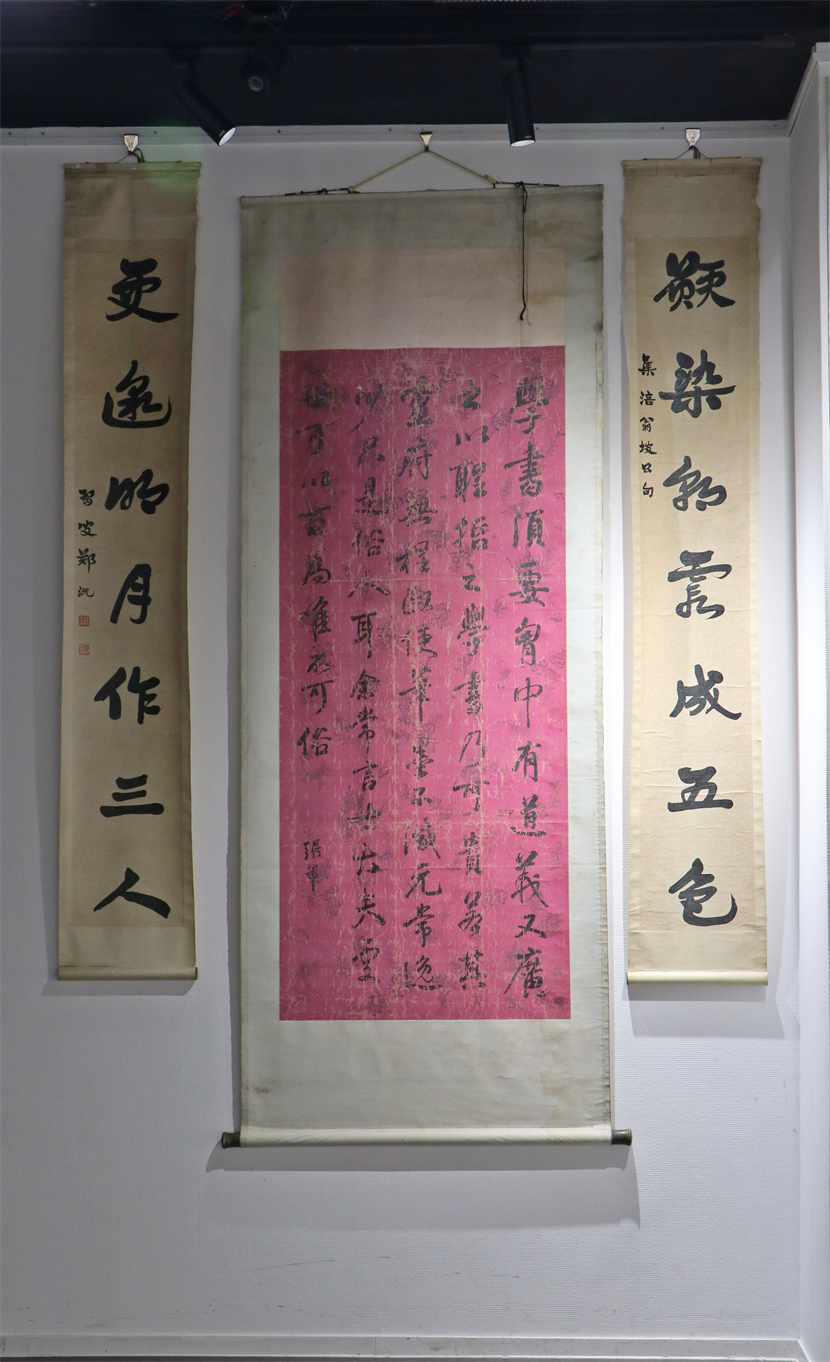 染朝霞成五色
集涪翁坡公句
學書須要胷中有道義又廣
之以聖哲之學書乃可貴若其
靈府無程假使筆墨不減元常逸
少只是俗人耳余常言士大夫處
世可以百為唯不可俗
更邀明月作三人
習叟鄭沅